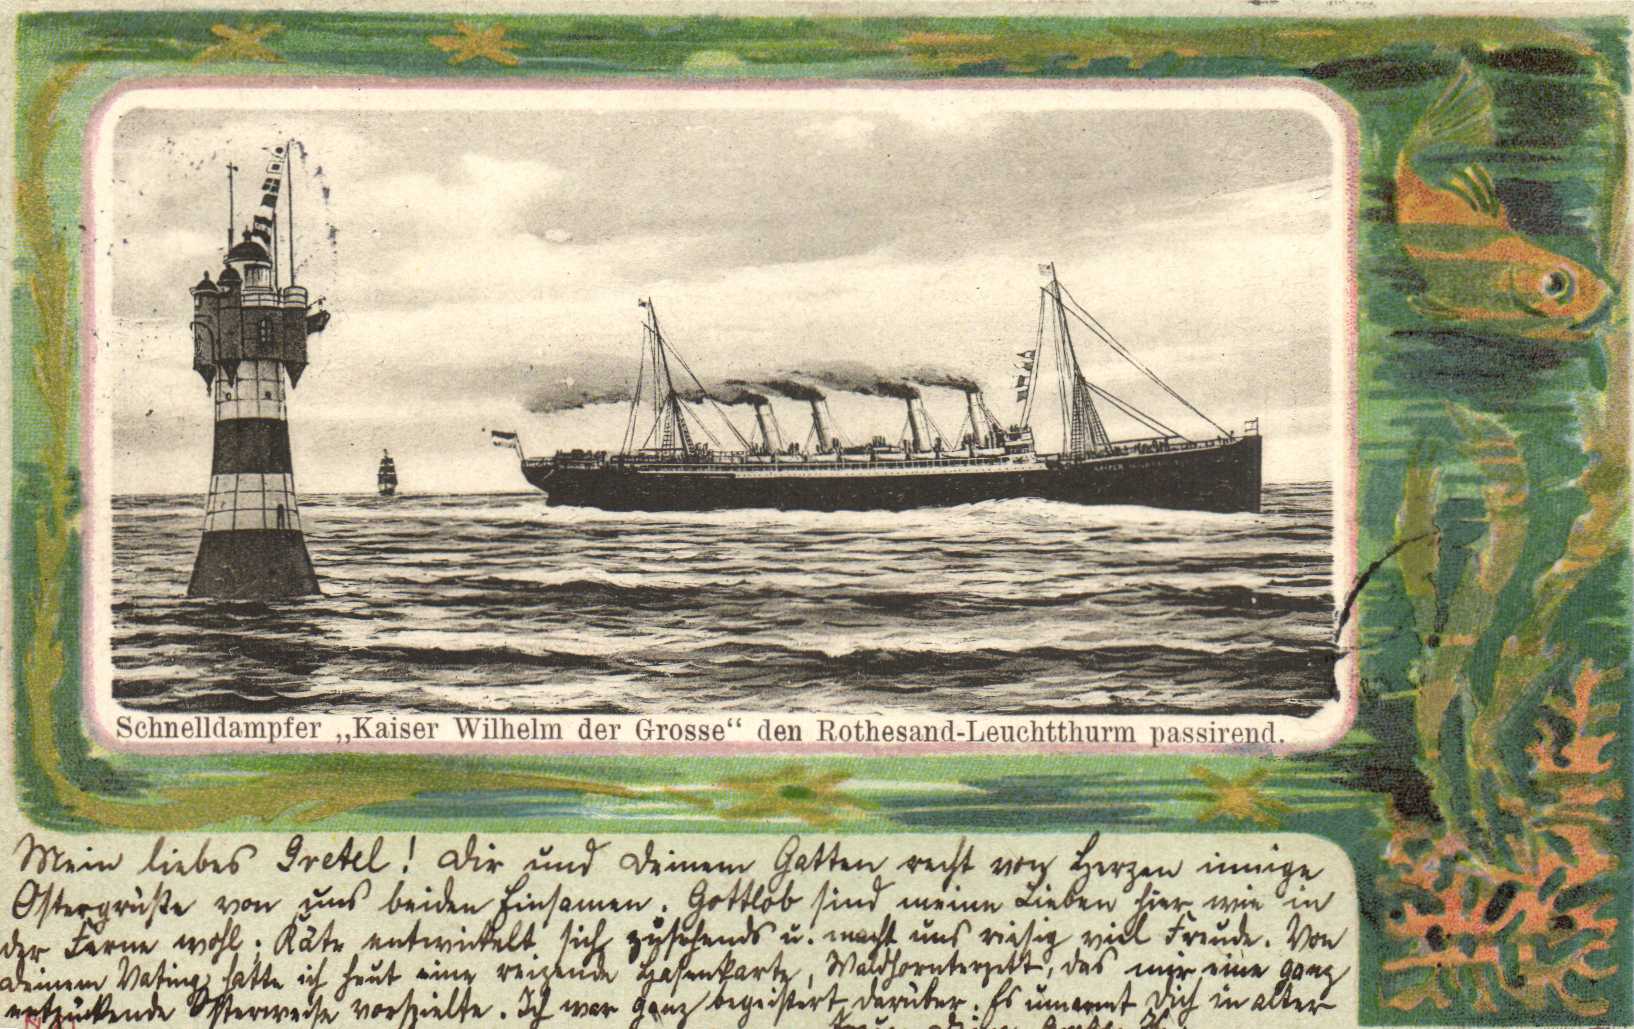 Schnelldampfer „Kaiser Wilhelm der Grosse“ den Rothesand-Leuchtthurm passirend.
Mein liebes Gretel! Dir und Deinem Gatten recht von Herzen innige
Ostergrüße von uns beiden Einsamen. Gottlob sind meine Lieben hier wie in
der Ferne wohl; Käte entwickelt sich zusehends u. macht uns riesig viel Freude. Von
Deinem Vating hatte ich heut eine reizende Hasenkarte, Waldhornterzett, das mir eine ganz
entzückende Osterweise vorspielte. Ich war ganz begeistert darüber. Es umarmt Dich in alter